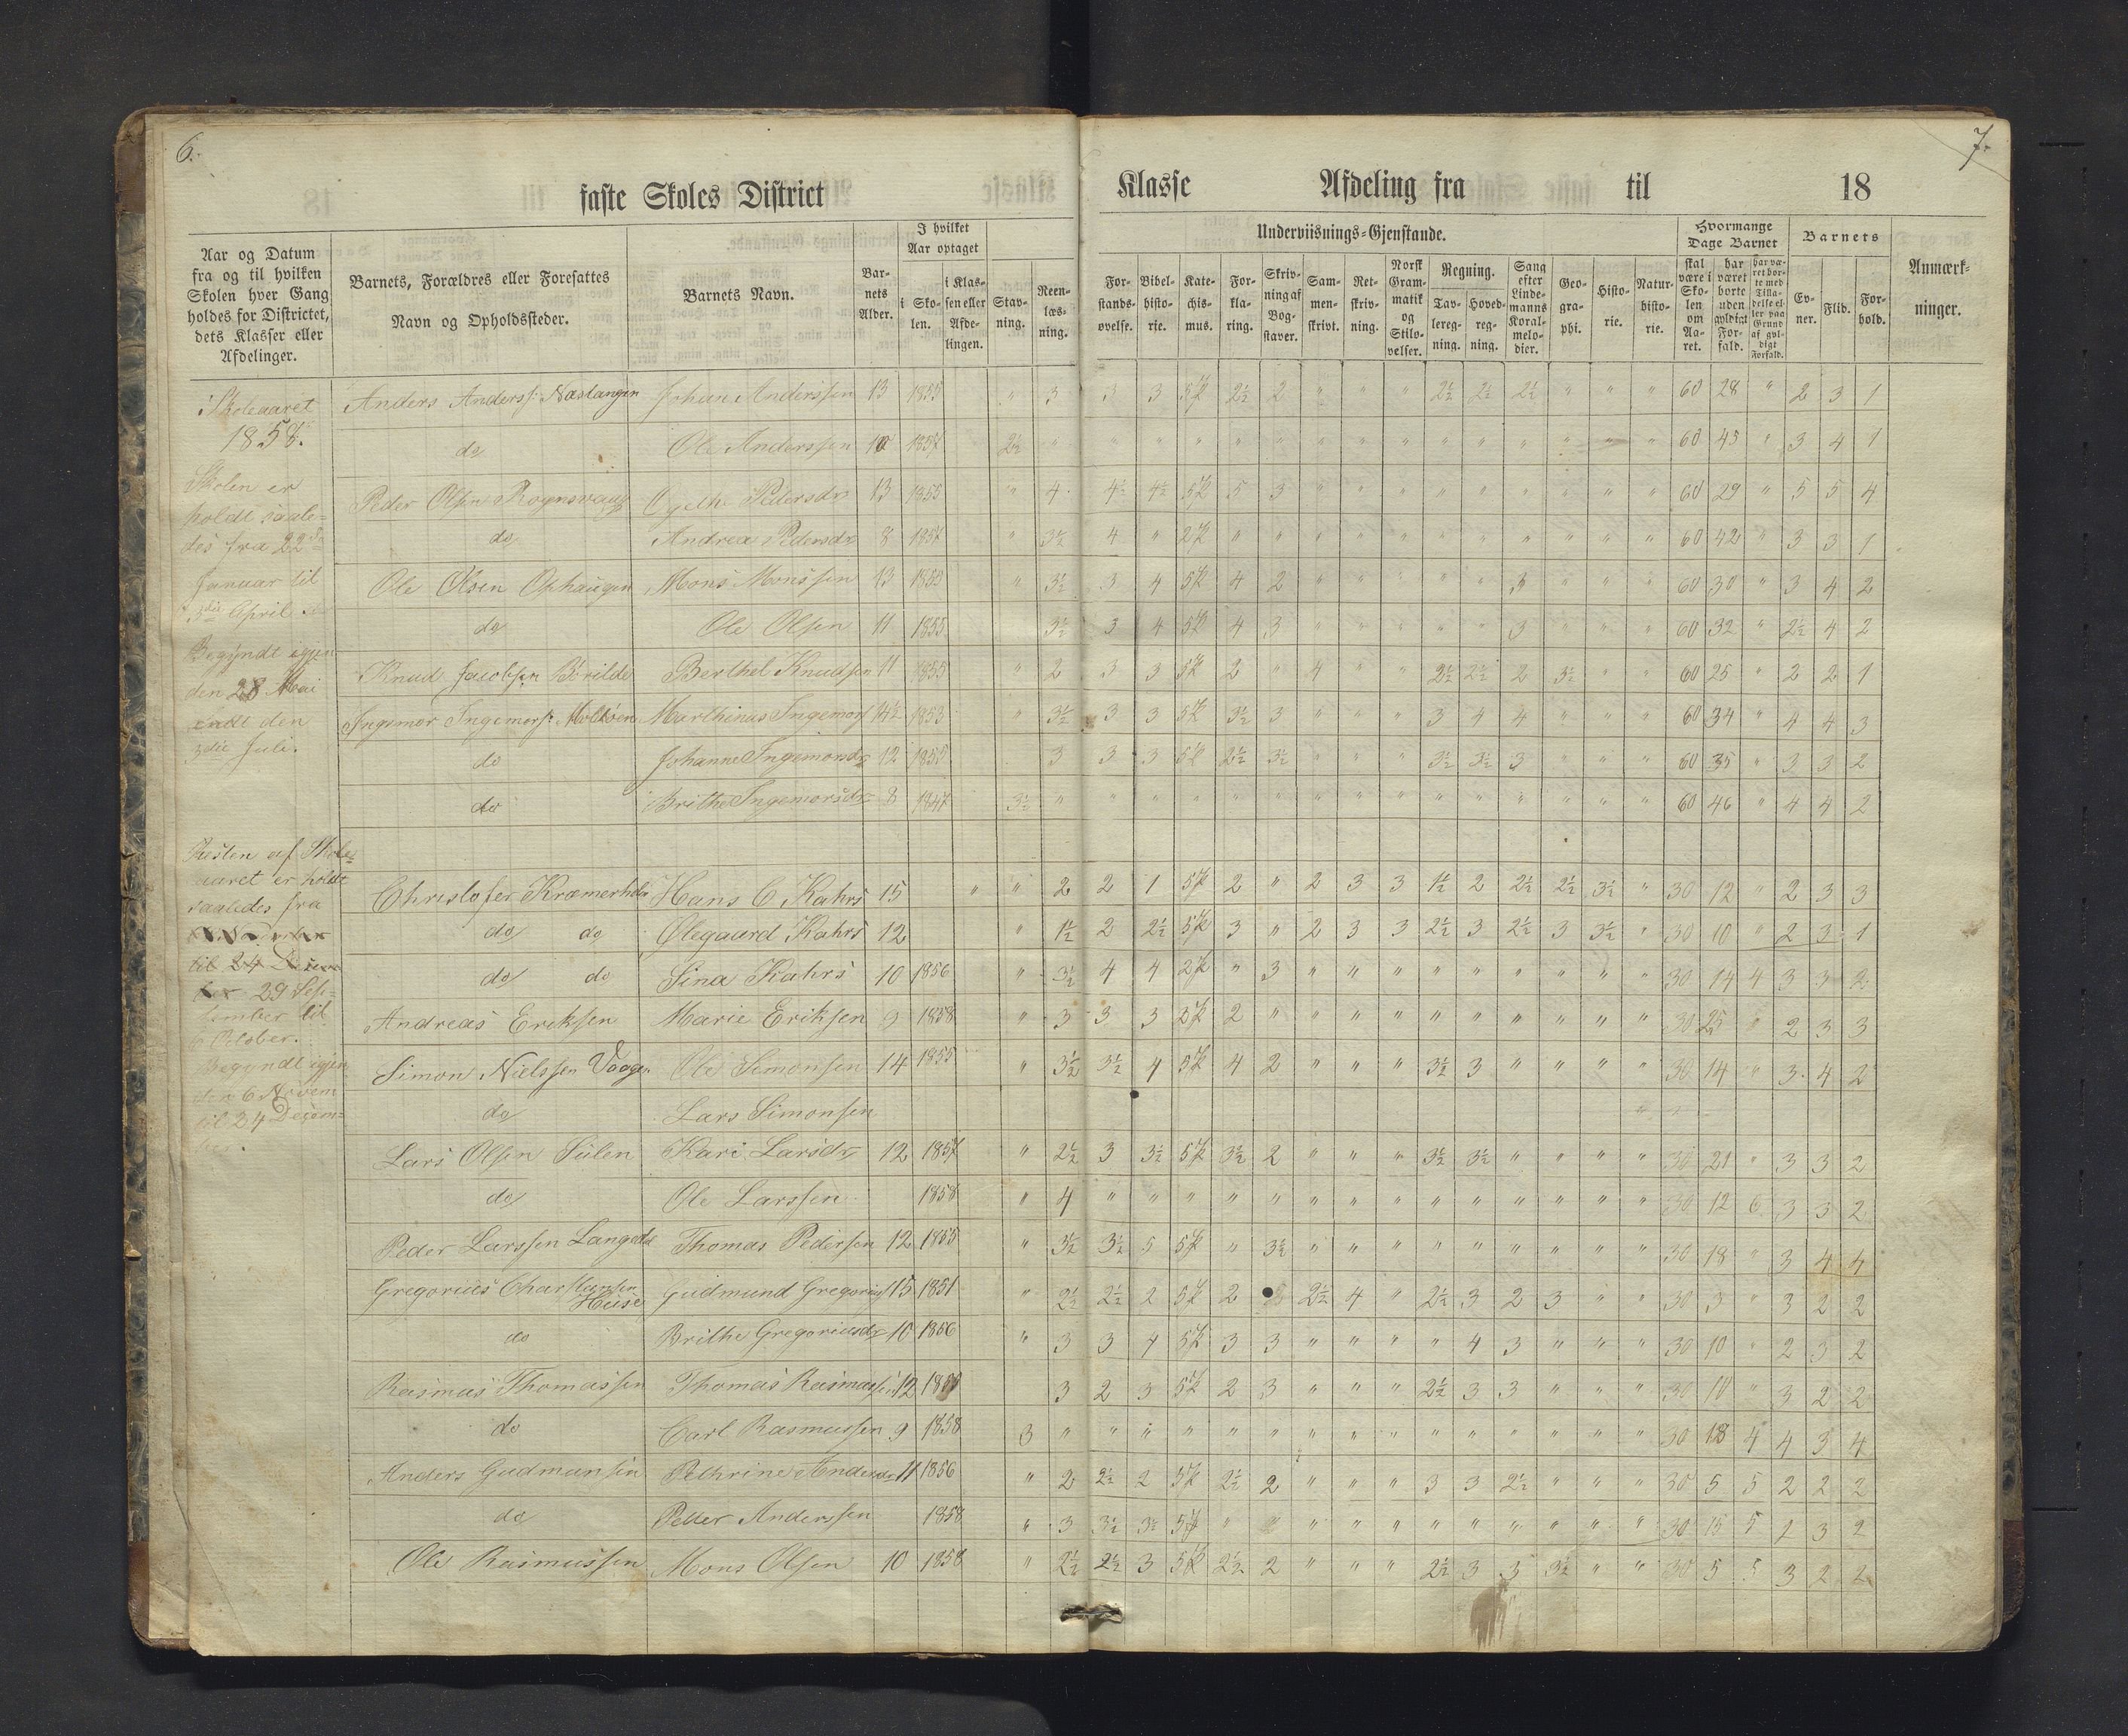 6.
7.
faste Skoles District
Klasse Afdeling fra til 18
Aar og Datum fra og til hvilken Skolen hver Gang holdes for Districtet, dets Klasser eller Afdelinger.
Barnets, Forældres eller Foresattes Navn og Opholdssteder.
Barnets Navn.
Barnets Alder.
I hvilket Aar optaget
i Skolen.
i Klassen eller Afdelingen.
Underviisnings-Gjenstande.
Stavning.
Reenlæsning.
Forstandsøvelse.
Bibelhistorie.
Katechismus.
Forklaring.
Skrivning af Bogstaver.
Sammenskrivt.
Retskrivning.
Norsk Grammatik og Stiløvelser.
Regning.
Tavleregning.
Hovedregning.
Sang efter Lindemanns Koralmelodier.
Geographi.
Historie.
Naturhistorie.
Hvormange Dage Barnet
skal være i Skolen om Aaret.
har været borte uden gyldigt Forfald.
har været borte med Tilladelse eller paa Grund af gyldigt Forfald.
Barnets
Evner.
Flid.
Forhold.
Anmærkninger.
Skoleaaret
1858.
Skolen er
holdt saale-
des fra 22
Januar til
April
Begyndt igjen
den 28 Mai
endt den
3die Juli.
Resten af Skole-
aaret er holdt
saaledes fra
til 24
29 Sep-
tember til
October.
Begyndt igjen
den 6 Novem
til 24 Decem-
ber.
Anders Anderss: Johan Anderssen 13 1855 " 3 3 3 5P 2½ 2 " " " 2½ 2½ 2½ " " " 60 28 " 2 3 1
do Ole Anderssen 10 1857 2½ " " " " " " " " " " " " " " " 60 45 " 3 4 1
Peder Olsen Pedersdr 13 1855 " 4 4½ 4½ 5P 5 3 " " " " " " " " " 60 29 " 5 5 4
do Andrea Pedersdr 8 1857 " 3½ 4 " 2P " " " " " " " " " " " 60 42 " 3 3 1
Ole Olsen Ophaugen Mons Monssen 13 1855 " 3½ 3 4 5P 4 2 " " " " " 3 " " " 60 30 " 3 4 2
do Ole Olsen 11 1855 3½ 3 4 5P 4 3 " " " " " 3 " " " 60 32 " 2½ 4 2
Knud Jacobsen Berthel Knudsen 11 1855 " 2 3 3 5P 2 " 4 " " 2½ 2½ 2 3½ " " 60 25 " 2 2 1
Ingemor Ingemors: Moldøen Marthinus Ingemors 14½ 1853 " 3½ 3 3 5P 3½ 3 " " " 3 4 4 " " " 60 34 " 4 4 3
do Johanne Ingemorsdr 12 1855 3 3 3 5P 2½ 3½ " " " 3½ 3½ 3 " " " 60 35 " 3 3 2
do Brithe Ingemorsdr 8 1847 3½ " " " " " " " " " " " " " " " 60 46 " 4 4 2
Christofer Kræmerh Hans C Kahrs 15 " " 2 2 1 5P 2 " 2 3 3 1½ 2 2½ 2½ 3½ " 30 12 " 2 3 3
do do Ølegaard Kahrs 12 " 1½ 2 2½ 5P 3 " 2 3 3 2½ 3 2½ 3 3½ " 30 10 " 2 3 1
do do Sina Kahrs 10 1856 " 3½ 4 4 2P " 3 " " " " " " " " " 30 14 4 3 3 2
Andreas Eriksen Marie Eriksen 9 1858 " 3 3 3 2P 2 " " " " " " " " " " 30 25 " 2 3 3
Simon Nielssen Vaagen Ole Simonsen 14 1855 " 3½ 3½ 4 5P 4 2 " " " 3½ 3 " " " " 30 14 " 3 4 2
do Lars Simonsen
Lars Olsen Sulen Kari Larsdr 12 1857 " 2½ 3 3½ 5P 3½ 2 " " " 3½ 3½ " " " " 30 21 " 3 3 2
do Ole Larssen 1858 " 4 " " " " " " " " " " " " " " 30 12 6 3 3 2
Peder Larssen Thomas Pedersen 12 1855 " 3½ 3½ 5 5P " 3½ " " " " " " " " " 30 18 " 3 4 4
Gregorius Huse Gudmund Gregorius 15 1851 " 2½ 2½ 2 5P 2 2½ 4 " 2½ 3 2 3 " " 30 3 " 3 2 2
do Brithe Gregoriusdr 10 1856 " 3 3 4 5P 3 3 " " " " 4 3 " " " 30 10 " 2 3 2
Rasmus Thomassen Thomas Rasmussen 12 3 2 3 5P 2 3 " " " 2½ 3 3 " " " 30 " 3 2 2
do Carl Rasmussen 9 1858 3 " " " " " " " " " " " " " " " 30 18 4 4 3 4
Anders Gudmunsen Pethrine Andersdr 11 1856 " 2 2½ 2 5P 2½ 2 " " " 3 3 2½ " " " 30 5 5 2 2 2
do Peder Anderssen 1858 " 3 3½ 3½ 5P " " " " " " " " " " 30 15 5 2 3 2
Ole Rasmussen Mons Olsen 10 1858 " 2½ 2½ 3 5P 2½ 2 " " " 2½ 3 3 3½ " " 30 5 5 3 2 2